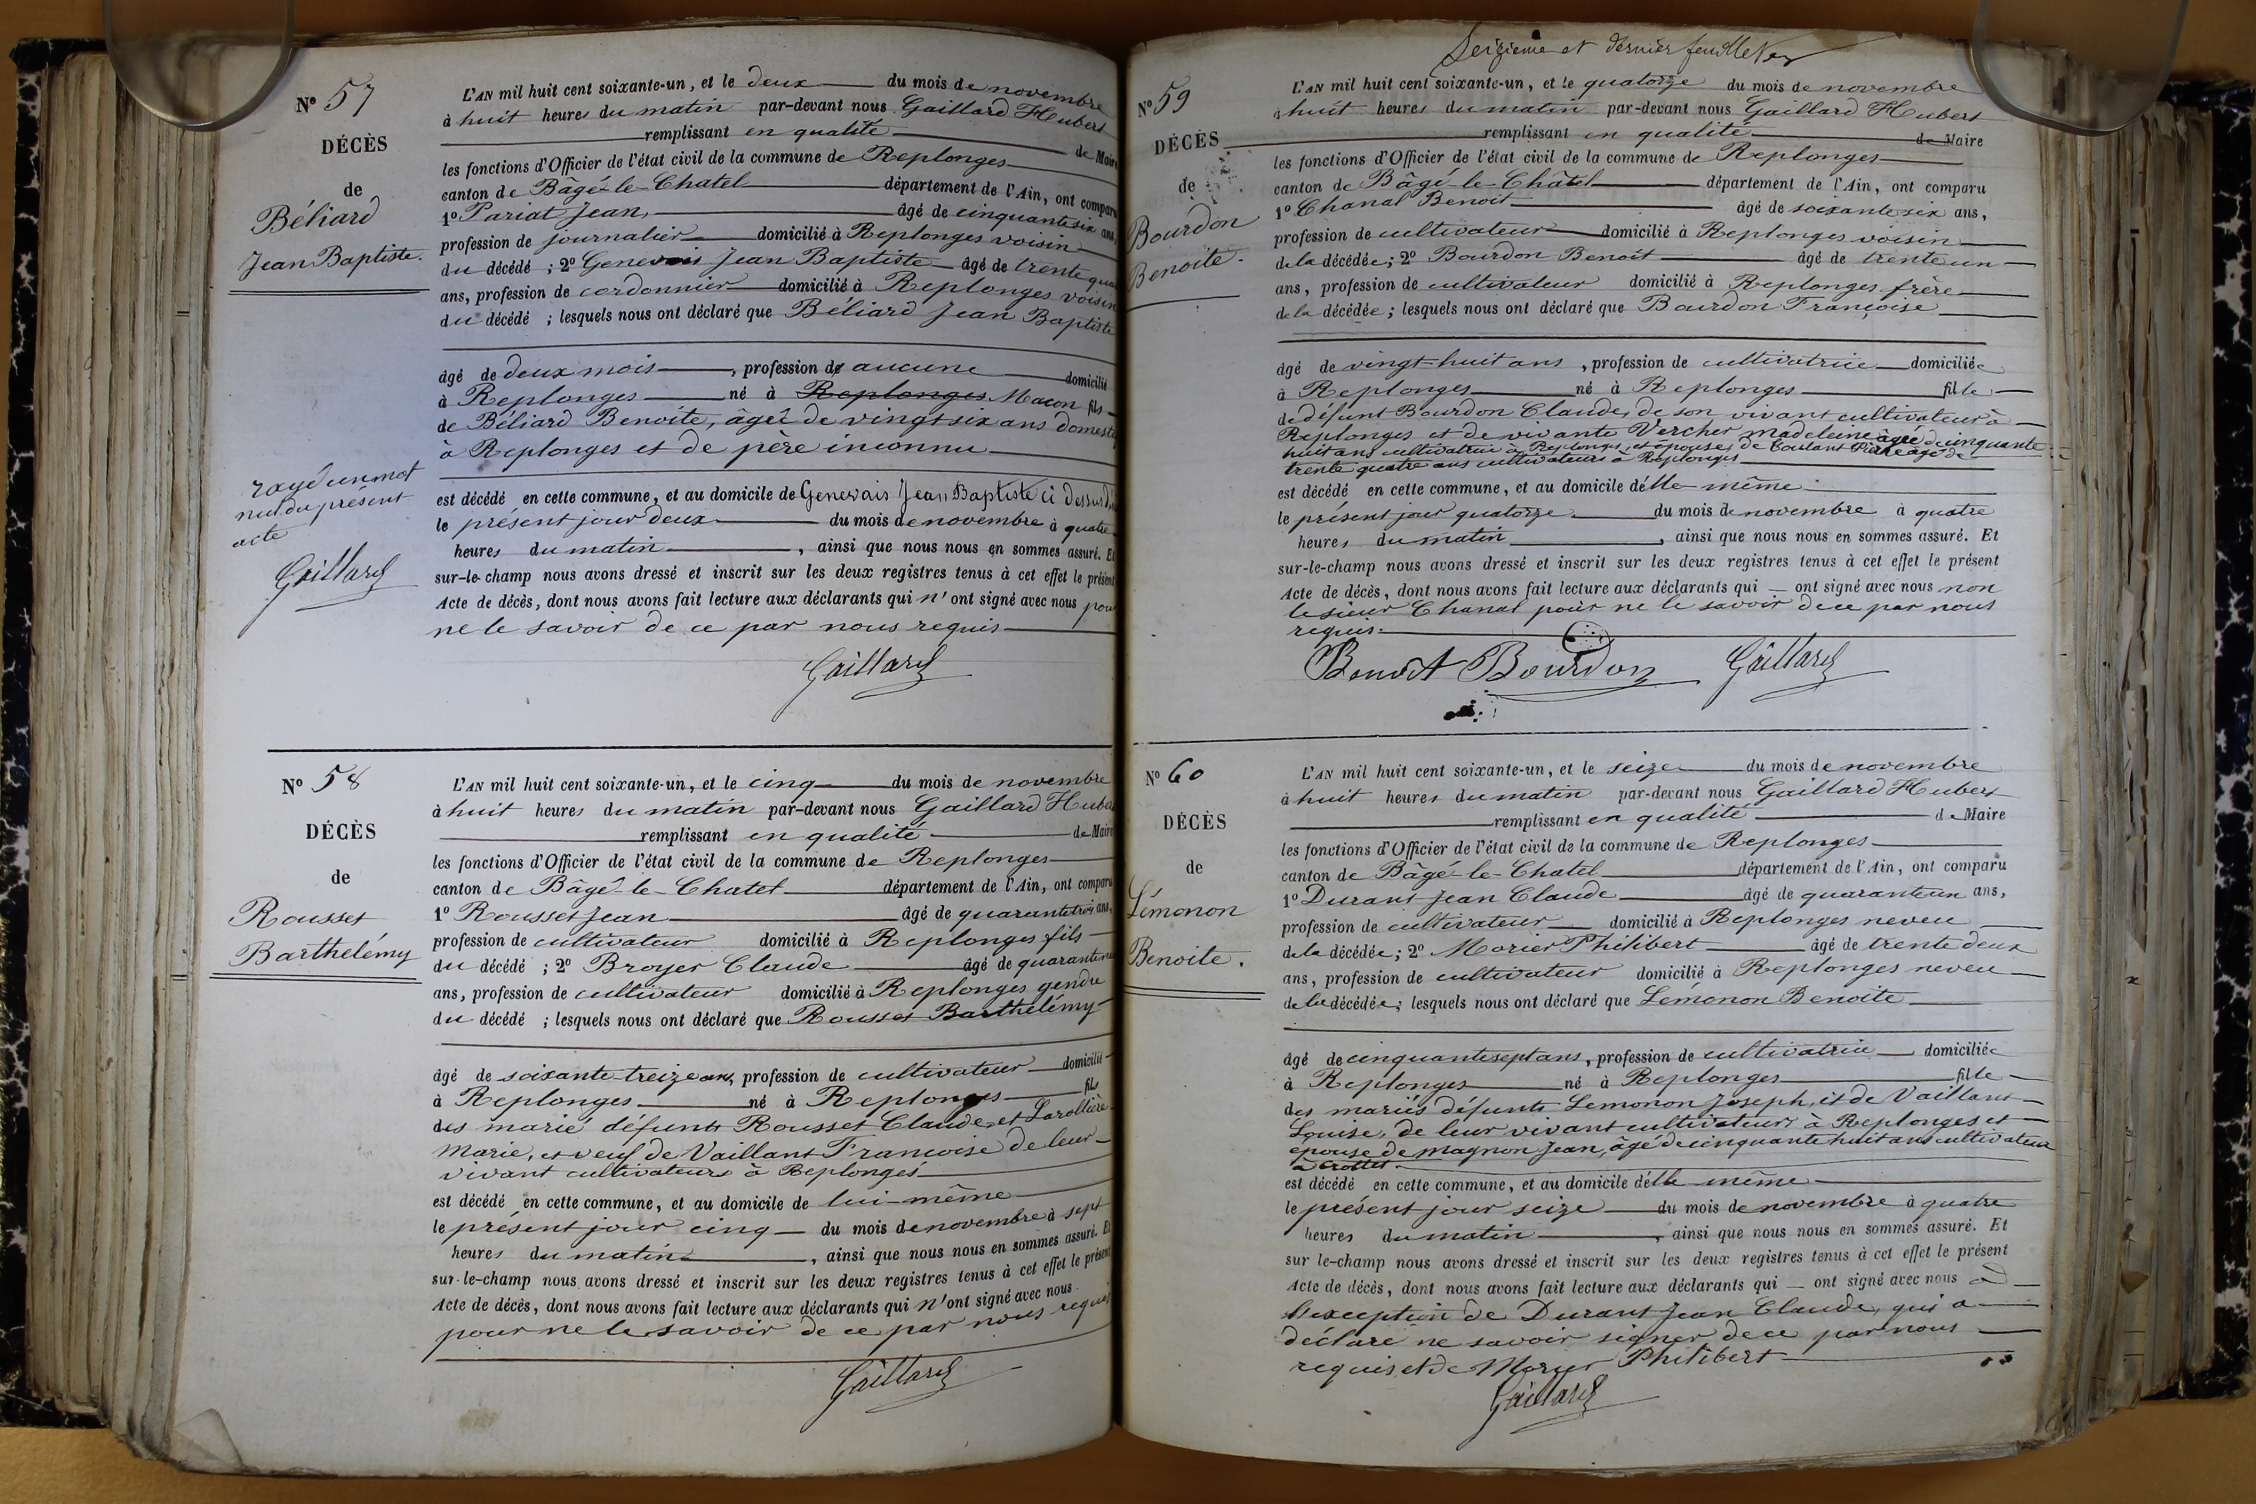 N° 57
DÉCÈS
de
Béliard
Jean Baptiste.
rayé un mot
nul du présent
acte
Gaillard
L'AN mil huit cent soixante-un, et le deux du mois de novembre
à huit heures du matin par-devant nous Gaillard Hubert
remplissant en qualité de Maire
les fonctions d'Officier de l'état civil de la commune de Replonges
canton de Bâgé-le-Chatel département de l'Ain, ont comparu
1° Pariat Jean, âgé de cinquante six ans,
profession de journalier domicilié à Replonges voisin
du décédé ; 2° Genevois Jean Baptiste âgé de trente quatre
ans, profession de cordonnier domicilié à Replonges voisin
du décédé ; lesquels nous ont déclaré que Béliard Jean Baptiste
âgé de deux mois, profession de aucune domicilié
à Replonges né à Replonges Macon fils
de Béliard Benoite, âgée de vingt six ans domestique
à Replonges et de père inconnu
est décédé en cette commune, et au domicile de Genevois Jean Baptiste ci dessus
le présent jour deux du mois de novembre à quatre
heures du matin, ainsi que nous nous en sommes assuré. Et
sur-le-champ nous avons dressé et inscrit sur les deux registres tenus à cet effet le présent
Acte de décès, dont nous avons fait lecture aux déclarants qui n'ont signé avec nous pour
ne le savoir de ce par nous requis
Gaillard
N° 58
DÉCÈS
de
Rousset
Barthelémy
L'AN mil huit cent soixante-un, et le cinq du mois de novembre
à huit heures du matin par-devant nous Gaillard Hubert
remplissant en qualité de Maire
les fonctions d'Officier de l'état civil de la commune de Replonges
canton de Bâgé-le-Chatel département de l'Ain, ont comparu
1° Rousset Jean âgé de quarante trois ans,
profession de cultivateur domicilié à Replonges fils
du décédé ; 2° Broyer Claude âgé de quarante
ans, profession de cultivateur domicilié à Replonges gendre
du décédé ; lesquels nous ont déclaré que Rousset Barthelémy
âgé de soixante treize ans, profession de cultivateur domicilié
à Replonges né à Replonges fils
des marié défunts Rousset Claude, et Larollière
Marie, et veuf de Vaillant Francoise de leur
vivant cultivateurs à Replonges
est décédé en cette commune, et au domicile de lui même
le présent jour cinq du mois de novembre à sept
heures du matin, ainsi que nous nous en sommes assuré. Et
sur-le-champ nous avons dressé et inscrit sur les deux registres tenus à cet effet le présent
Acte de décès, dont nous avons fait lecture aux déclarants qui n'ont signé avec nous
pour ne le savoir de ce par nous requis
Gaillard
Seizieme et dernier feuillet
N° 59
DÉCÈS
de
Bourdon
Benoite.
L'AN mil huit cent soixante-un, et le quatorze du mois de novembre
à huit heures du matin par-devant nous Gaillard Hubert
remplissant en qualité de Maire
les fonctions d'Officier de l'état civil de la commune de Replonges
canton de Bâgé-le-Châtel département de l'Ain, ont comparu
1° Chanal Benoit âgé de soixante six ans,
profession de cultivateur domicilié à Replonges voisin
de la décédée ; 2° Bourdon Benoit âgé de trente un
ans, profession de cultivateur domicilié à Replonges frère
de la décédée ; lesquels nous ont déclaré que Bourdon Françoise
âgé de vingt-huit ans, profession de cultivatrice domiciliée
à Replonges né à Replonges fille
de défunt Bourdon Claude, de son vivant cultivateur à
Replonges et de vivante Vercher Madeleine âgée de cinquante
huit ans cultivatrice à Replonges, et épouse de Coulant Pierre âgé de
trente quatre ans cultivateurs à Replonges
est décédé en cette commune, et au domicile d'elle même
le présent jour quatorze du mois de novembre à quatre
heures du matin, ainsi que nous nous en sommes assuré. Et
sur-le-champ nous avons dressé et inscrit sur les deux registres tenus à cet effet le présent
Acte de décès, dont nous avons fait lecture aux déclarants qui ont signé avec nous non
le sieur Chanal pour ne le savoir de ce par nous
requis.
Benoit Bourdon Gaillard
N° 60
DÉCÈS
de
Lémonon
Benoite.
L'AN mil huit cent soixante-un, et le seize du mois de novembre
à huit heures du matin par-devant nous Gaillard Hubert
remplissant en qualité de Maire
les fonctions d'Officier de l'état civil de la commune de Replonges
canton de Bâgé-le-Chatel département de l'Ain, ont comparu
1° Durant Jean Claude âgé de quarante un ans,
profession de cultivateur domicilié à Replonges neveu
de la décédée ; 2° Morier Philibert âgé de trente deux
ans, profession de cultivateur domicilié à Replonges neveu
de la décédée ; lesquels nous ont déclaré que Lémonon Benoite
âgé de cinquante sept ans, profession de cultivatrice domiciliée
à Replonges né à Replonges fille
des mariés défunts Lemonon Joseph, et de Vaillant
Louise, de leur vivant cultivateurs à Replonges et
epouse de Magnon Jean, âgé de cinquante huit ans cultivateur
à Crottet.
est décédé en cette commune, et au domicile d'elle même
le présent jour seize du mois de novembre à quatre
heures du matin, ainsi que nous nous en sommes assuré. Et
sur le-champ nous avons dressé et inscrit sur les deux registres tenus à cet effet le présent
Acte de décès, dont nous avons fait lecture aux déclarants qui ont signé avec nous à
l'exception de Durant Jean Claude, qui a
déclaré ne savoir signer de ce par nous
requis, et de Morier Philibert
Gaillard